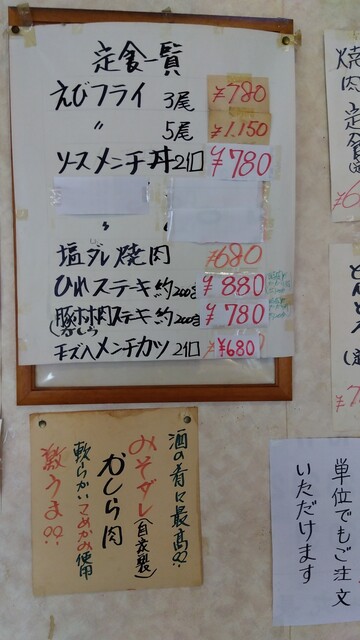 定食一覧
えびフライ 3尾 ¥780
〃 5尾 ¥1.150
ソースメンチ丼 2個 ¥780
塩ダレ焼肉 ¥680
ひれステーキ 約200g ¥880
豚ホホ肉ステーキ 約200g ¥780
(かしら)
チーズ入メンチカツ 2個 ¥680
酒の肴に最高!!
みそダレ(自家製)
かしら肉
軟らかいこめかみ使用
激うま!!
焼肉定食
単位でもご注文
いただけます